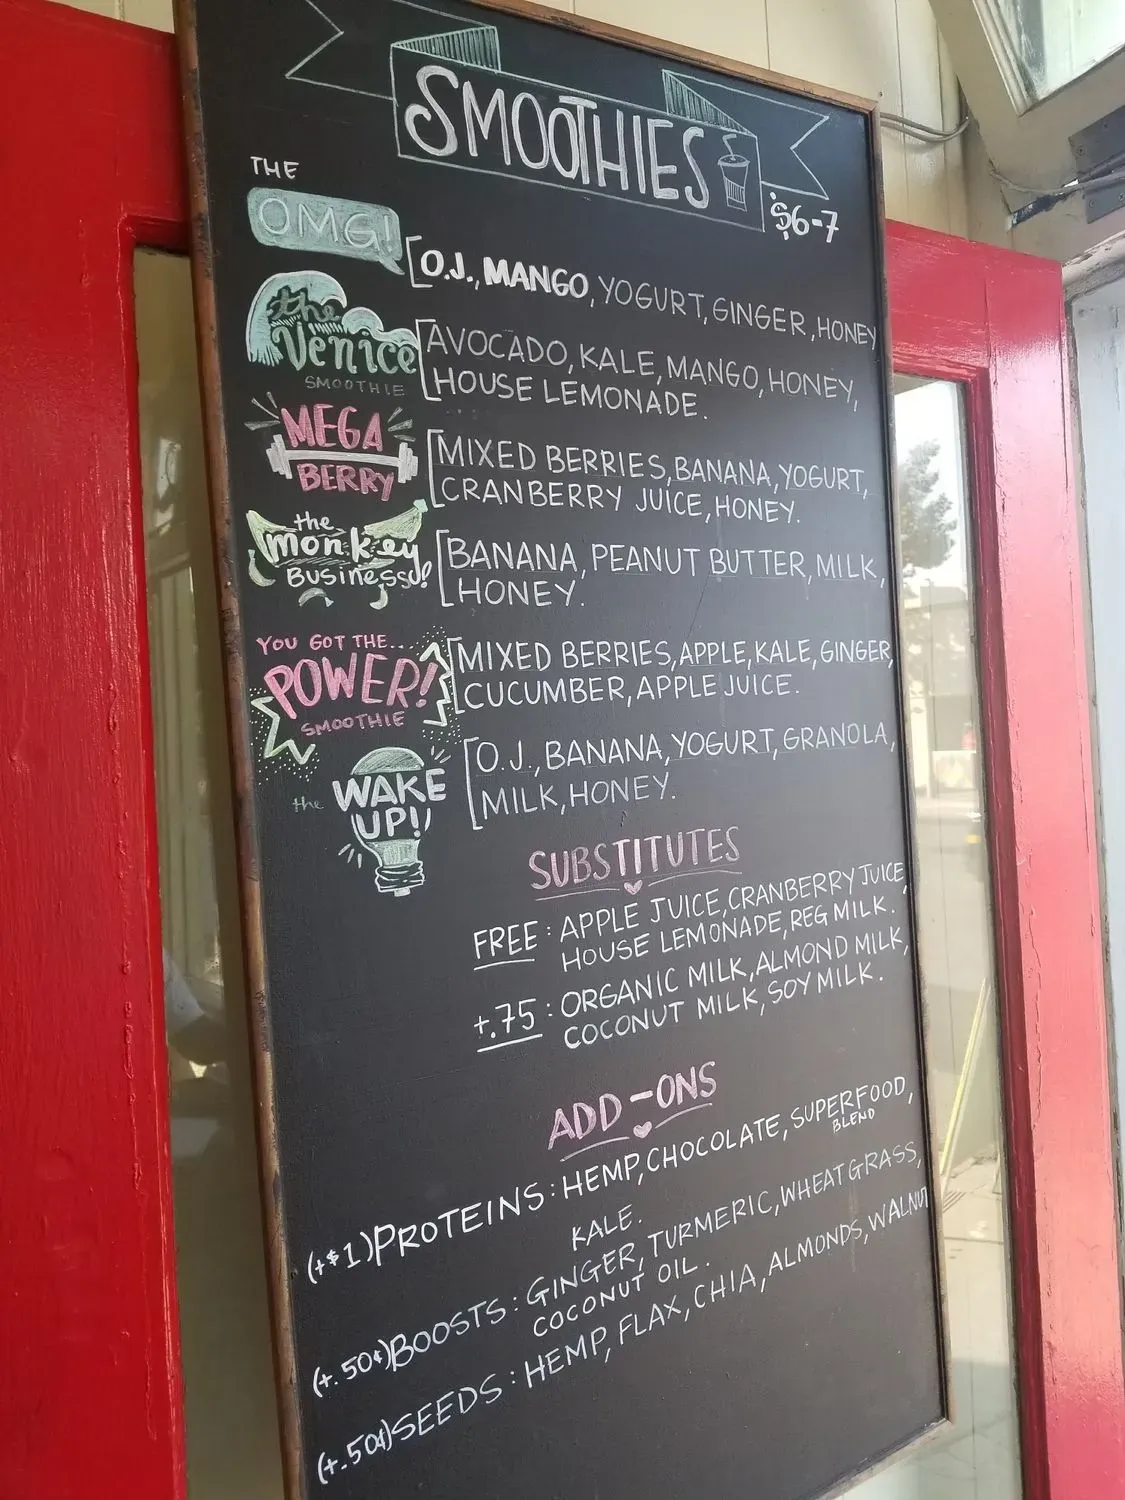 SMOOTHIES
$6-7
THE
OMG!
O.J., MANGO, YOGURT, GINGER, HONEY
the
Venice
SMOOTHIE
AVOCADO, KALE, MANGO, HONEY,
HOUSE LEMONADE.
MEGA
BERRY
MIXED BERRIES, BANANA, YOGURT,
CRANBERRY JUICE, HONEY.
the
monkey
BUSINESS!
BANANA, PEANUT BUTTER, MILK,
HONEY.
YOU GOT THE...
POWER!
SMOOTHIE
MIXED BERRIES, APPLE, KALE, GINGER,
CUCUMBER, APPLE JUICE.
the WAKE
UP!
O.J., BANANA, YOGURT, GRANOLA,
MILK, HONEY.
SUBSTITUTES
FREE: APPLE JUICE, CRANBERRY JUICE,
HOUSE LEMONADE, REG MILK.
+.75: ORGANIC MILK, ALMOND MILK,
COCONUT MILK, SOY MILK.
ADD-ONS
(+$1) PROTEINS: HEMP, CHOCOLATE, SUPERFOOD,
BLEND
KALE.
(+.50¢) BOOSTS: GINGER, TURMERIC, WHEATGRASS,
COCONUT OIL.
(+.50¢) SEEDS: HEMP, FLAX, CHIA, ALMONDS, WALNUT